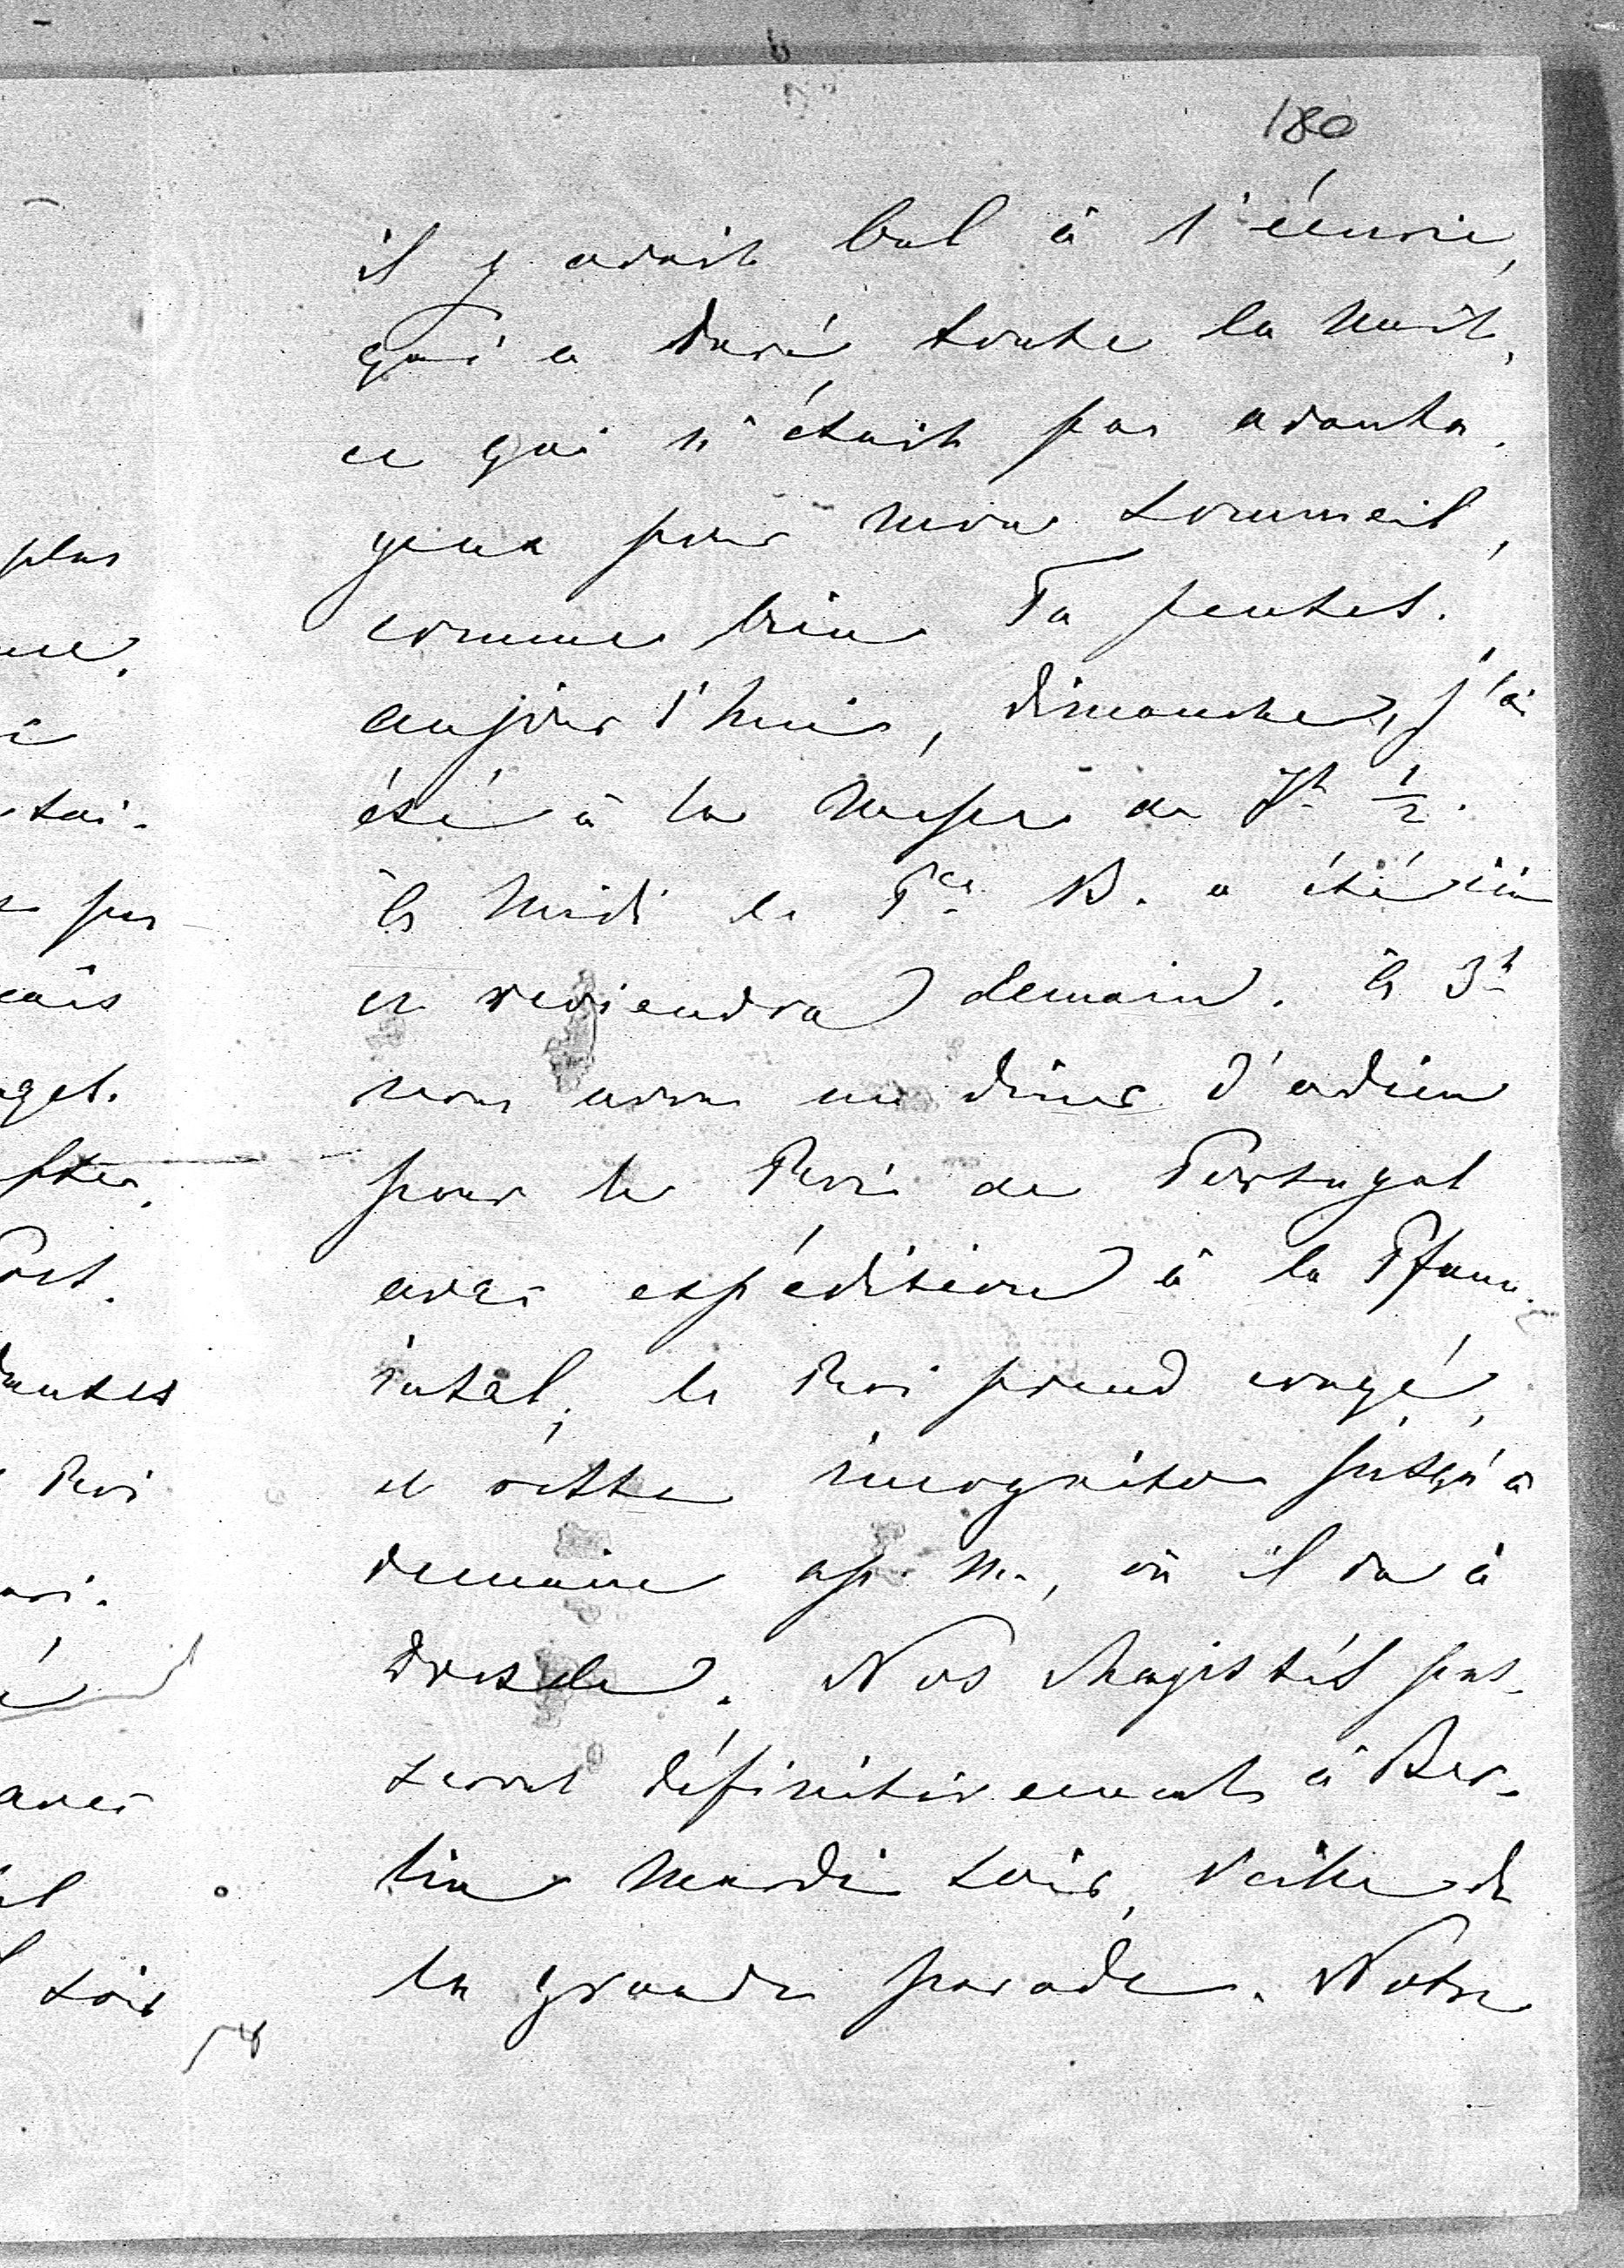 180
il y avait bal à l'écurie,
qui a duré toute la nuit,
ce qui n'était pas avanta-
geux pour mon sommeil,
comme bien Tu penses.
aujourd'hui, dimanche, j'ai
été à la Messe de 7h ½.
à midi le Pce B. a été ici
et reviendra demain. à 3h
nous avons un diner d'adieu
pour le Roi de Portugal
avec expédition à la Pfauen-
insel, le Roi prend congé,
et reste incognito jusqu'à
demain ap. m., où il va à
Dresde. Nos Majestés pas-
seront définitivement à Ber-
lin Mardi soir, veille de
la grande parade. Notre
plus
pas
Roi
avec
soir